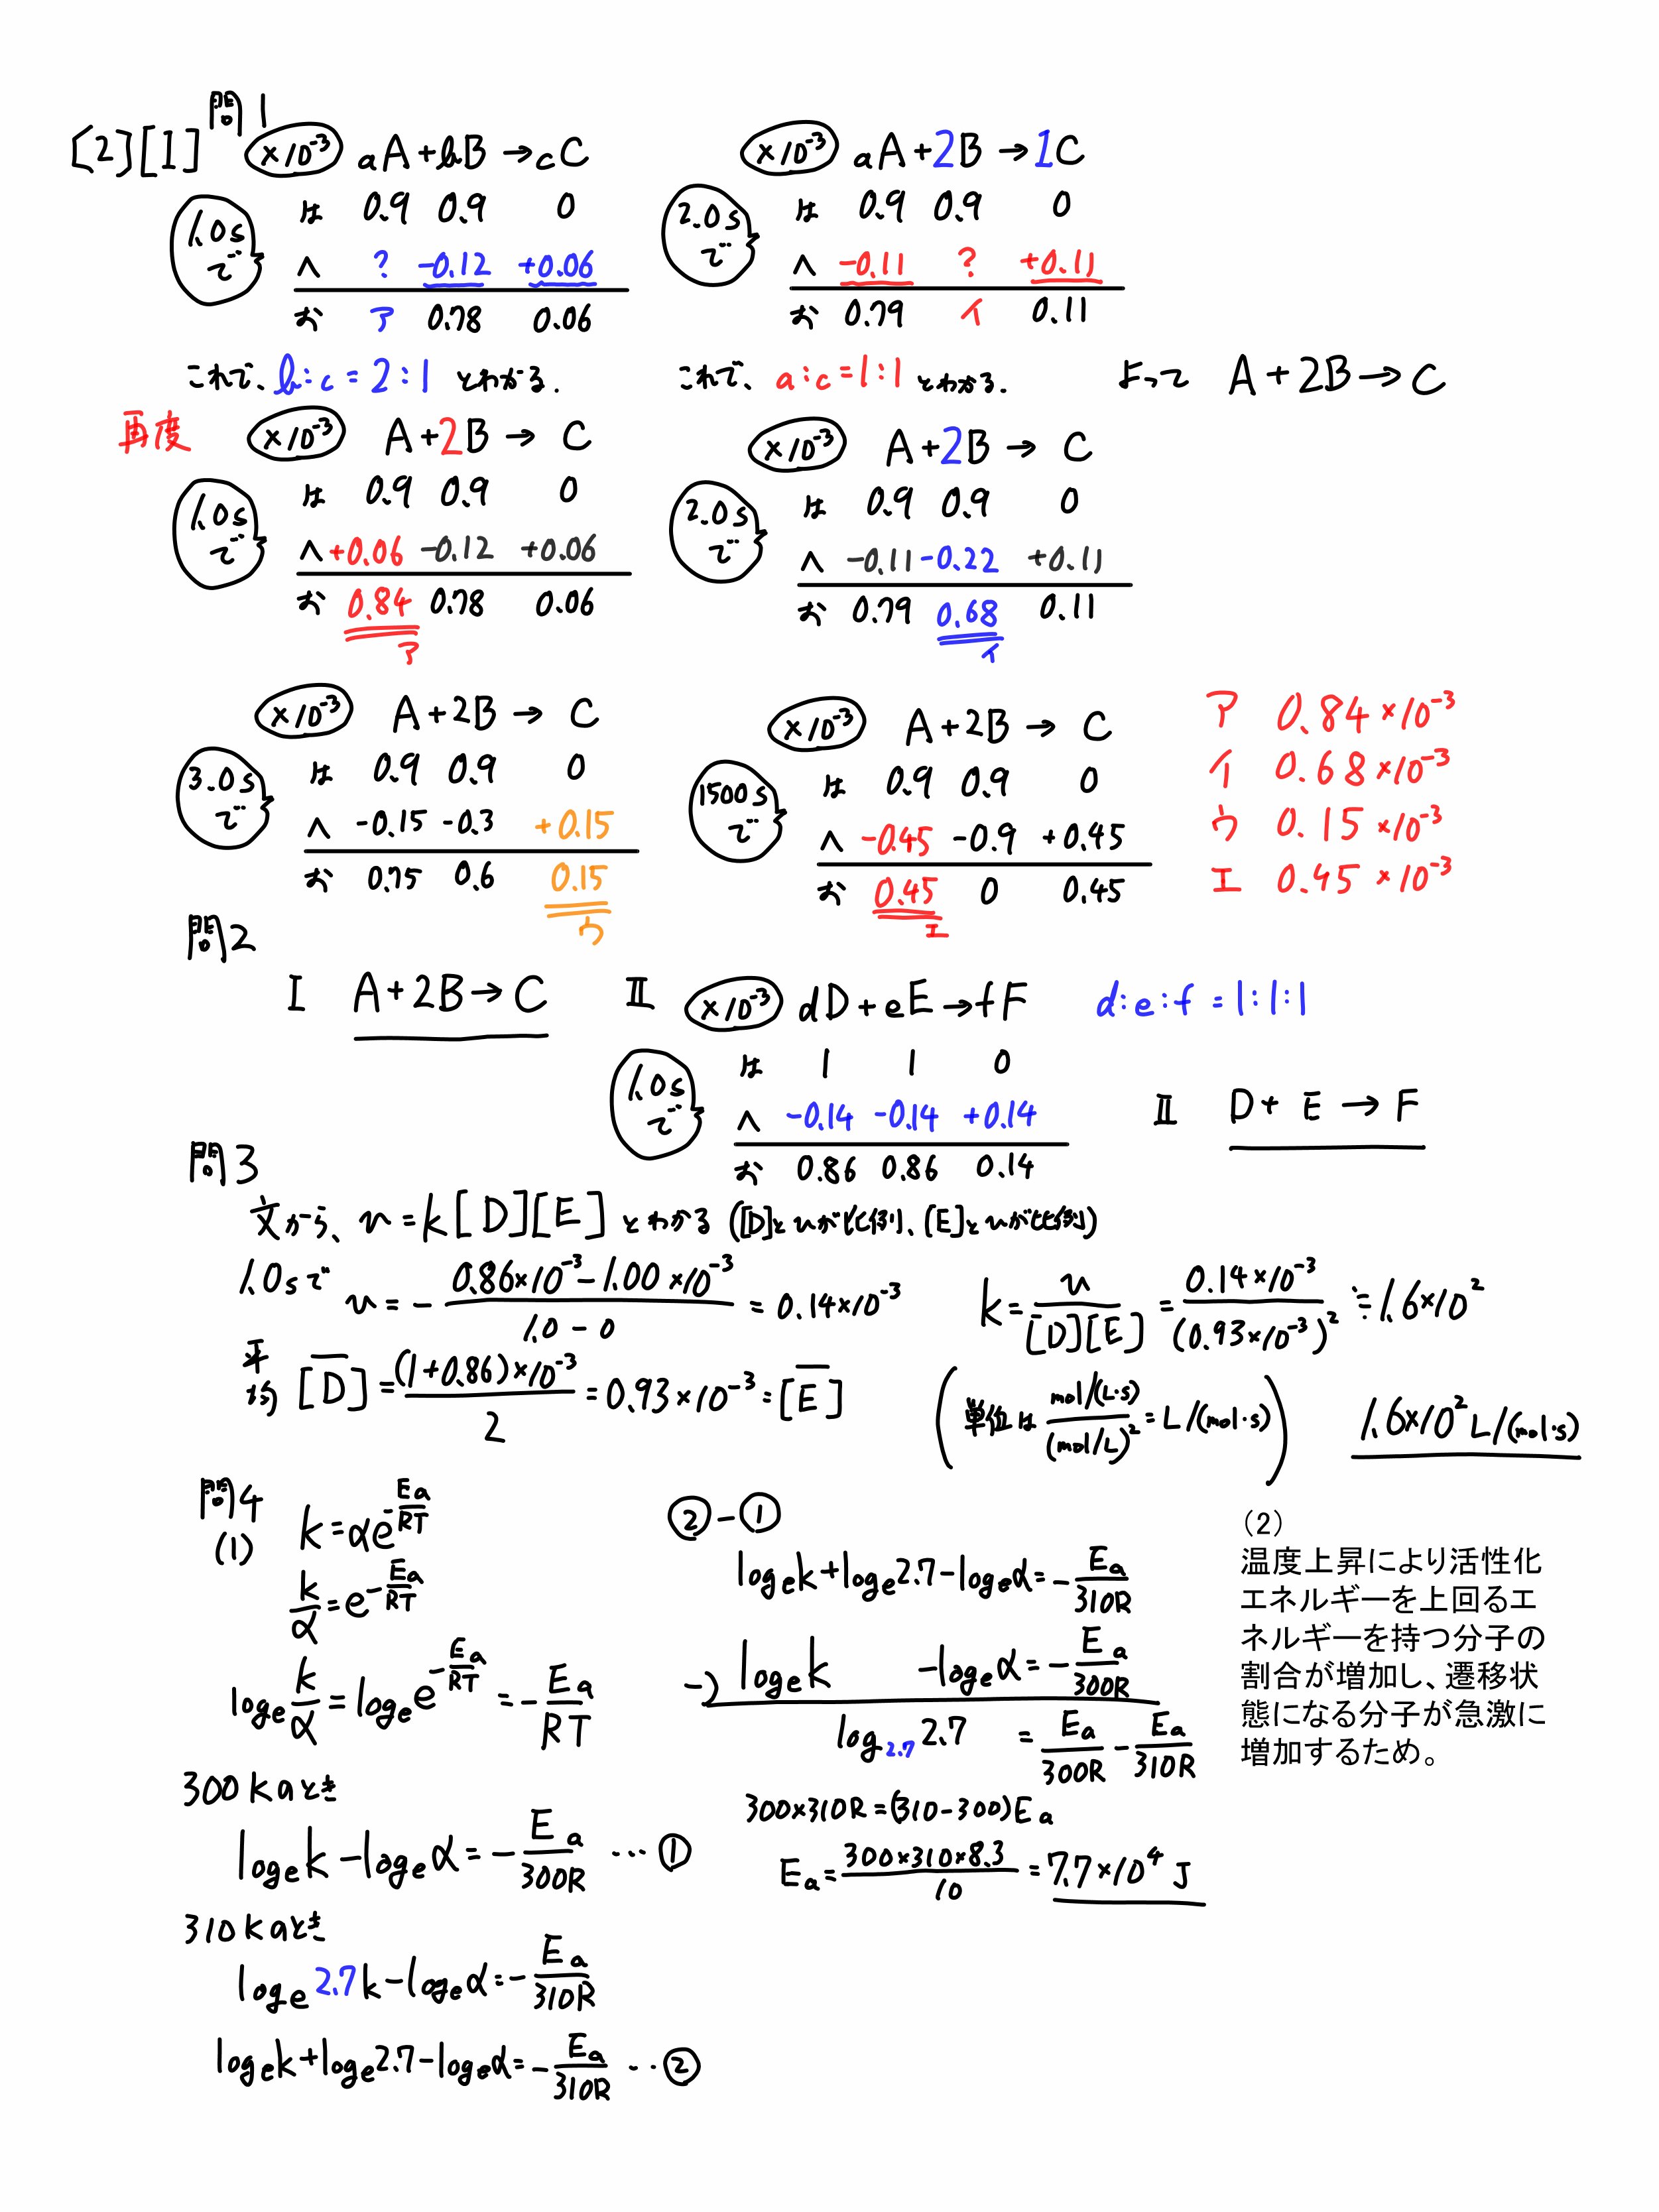 [2][1] 問1
×10⁻³ aA+bB→cC
1.0sで
は 0.9 0.9 0
へ ? -0.12 +0.06
お ア 0.78 0.06
これで、b:c=2:1 とわかる.
×10⁻³ aA+2B→1C
2.0sで
は 0.9 0.9 0
へ -0.11 ? +0.11
お 0.79 イ 0.11
これで、a:c=1:1 とわかる.
よって A+2B→C
再度
×10⁻³ A+2B→C
1.0sで
は 0.9 0.9 0
へ +0.06 -0.12 +0.06
お 0.84 0.78 0.06
ア
×10⁻³ A+2B→C
2.0sで
は 0.9 0.9 0
へ -0.11 -0.22 +0.11
お 0.79 0.68 0.11
イ
×10⁻³ A+2B→C
3.0sで
は 0.9 0.9 0
へ -0.15 -0.3 +0.15
お 0.75 0.6 0.15
ウ
×10⁻³ A+2B→C
1500sで
は 0.9 0.9 0
へ -0.45 -0.9 +0.45
お 0.45 0 0.45
エ
ア 0.84×10⁻³
イ 0.68×10⁻³
ウ 0.15×10⁻³
エ 0.45×10⁻³
問2
I A+2B→C
II ×10⁻³ dD+eE→fF d:e:f=1:1:1
1.0sで
は 1 1 0
へ -0.14 -0.14 +0.14
お 0.86 0.86 0.14
II D+E→F
問3
文から、v=k[D][E]とわかる([D]とvが比例、[E]とvが比例)
1.0sで v=-(0.86×10⁻³-1.00×10⁻³)/(1.0-0)=0.14×10⁻³
平均 [D̅]=(1+0.86)×10⁻³/2=0.93×10⁻³=[E̅]
k=v/([D̅][E̅])=0.14×10⁻³/(0.93×10⁻³)²≒1.6×10²
(単位は (mol/(L·s))/(mol/L)²=L/(mol·s))
1.6×10² L/(mol·s)
問4
(1)
k=αe^(-Ea/RT)
k/α=e^(-Ea/RT)
logₑ k/α=logₑ e^(-Ea/RT)=-Ea/RT
300Kのとき
logₑk-logₑα=-Ea/300R …①
310Kのとき
logₑ2.7k-logₑα=-Ea/310R
logₑk+logₑ2.7-logₑα=-Ea/310R …②
②-①
logₑk+logₑ2.7-logₑα=-Ea/310R
-) logₑk -logₑα=-Ea/300R
log₂.₇2.7 =Ea/300R-Ea/310R
300×310R=(310-300)Ea
Ea=300×310×8.3/10=7.7×10⁴ J
(2)
温度上昇により活性化
エネルギーを上回るエ
ネルギーを持つ分子の
割合が増加し、遷移状
態になる分子が急激に
増加するため。